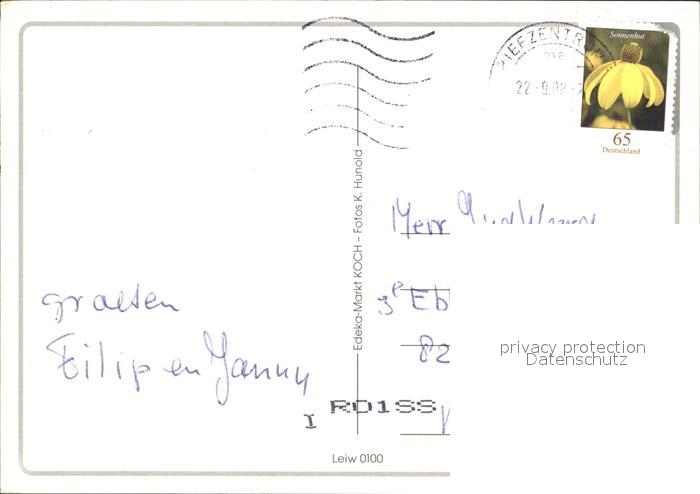 Sonnenhut
22-9.08
65
Deutschland
Edeka-Markt KOCH – Fotos K. Hunold
Herr
groeten
Filip en Janny
Eb
82
privacy protection
Datenschutz
RD1SS
I
Leiw 0100